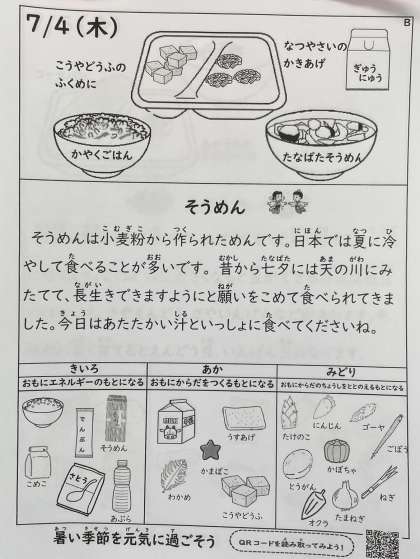 7/4(木)
B
こうやどうふの
ふくめに
なつやさいの
かきあげ
ぎゅう
にゅう
かやくごはん
たなばたそうめん
そうめん
そうめんは小麦粉から作られためんです。日本では夏に冷
やして食べることが多いです。昔から七夕には天の川にみ
たてて、長生きできますようにと願いをこめて食べられてきま
した。今日はあたたかい汁といっしょに食べてくださいね。
きいろ
おもにエネルギーのもとになる
あか
おもにからだをつくるもとになる
みどり
おもにからだのちょうしをととのえるもとになる
でんぷん
そうめん
こめこ
さとう
あぶら
うすあげ
かまぼこ
わかめ
こうやどうふ
たけのこ
にんじん
ゴーヤ
ごぼう
かぼちゃ
とうがん
オクラ
たまねぎ
ねぎ
暑い季節を元気に過ごそう
QRコードを読み取ってみよう!